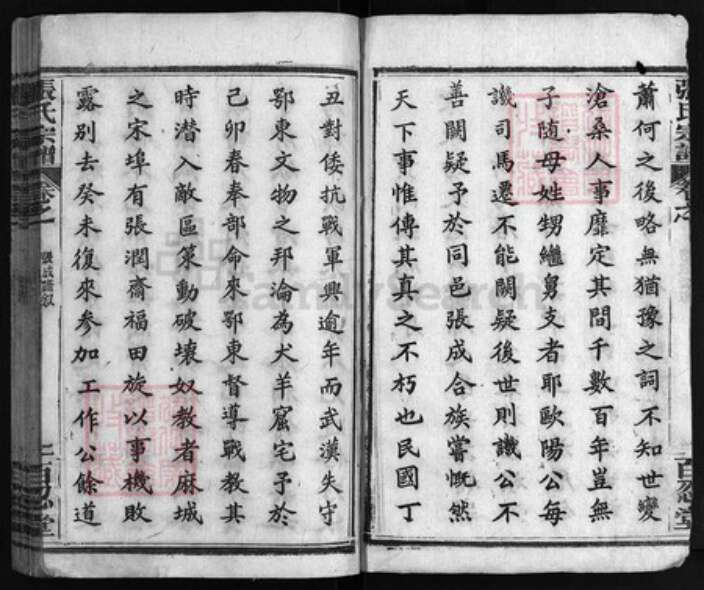 蕭何之後略無猶豫之詞不知世變
滄桑人事靡定其間千數百年豈無
子随母姓甥繼舅支者耶歐陽公每
譏司馬遷不能闕疑後世則譏公不
善闕疑予於同邑張成合族嘗慨然
天下事惟傳其真之不朽也民國丁
丑對倭抗戰軍興逾年而武漢失守
鄂東文物之邦淪為犬羊窟宅予於
己卯春奉部命來鄂東督導戰教其
時潛入敵區策動破壞奴教者麻城
之宋埠有張潤齋福田旋以事機敗
露別去癸未復來參加工作公餘道
張氏宗譜
卷之一
張成譜叙
二百忍堂
張氏宗譜
卷之
百忍堂
FamilySearch